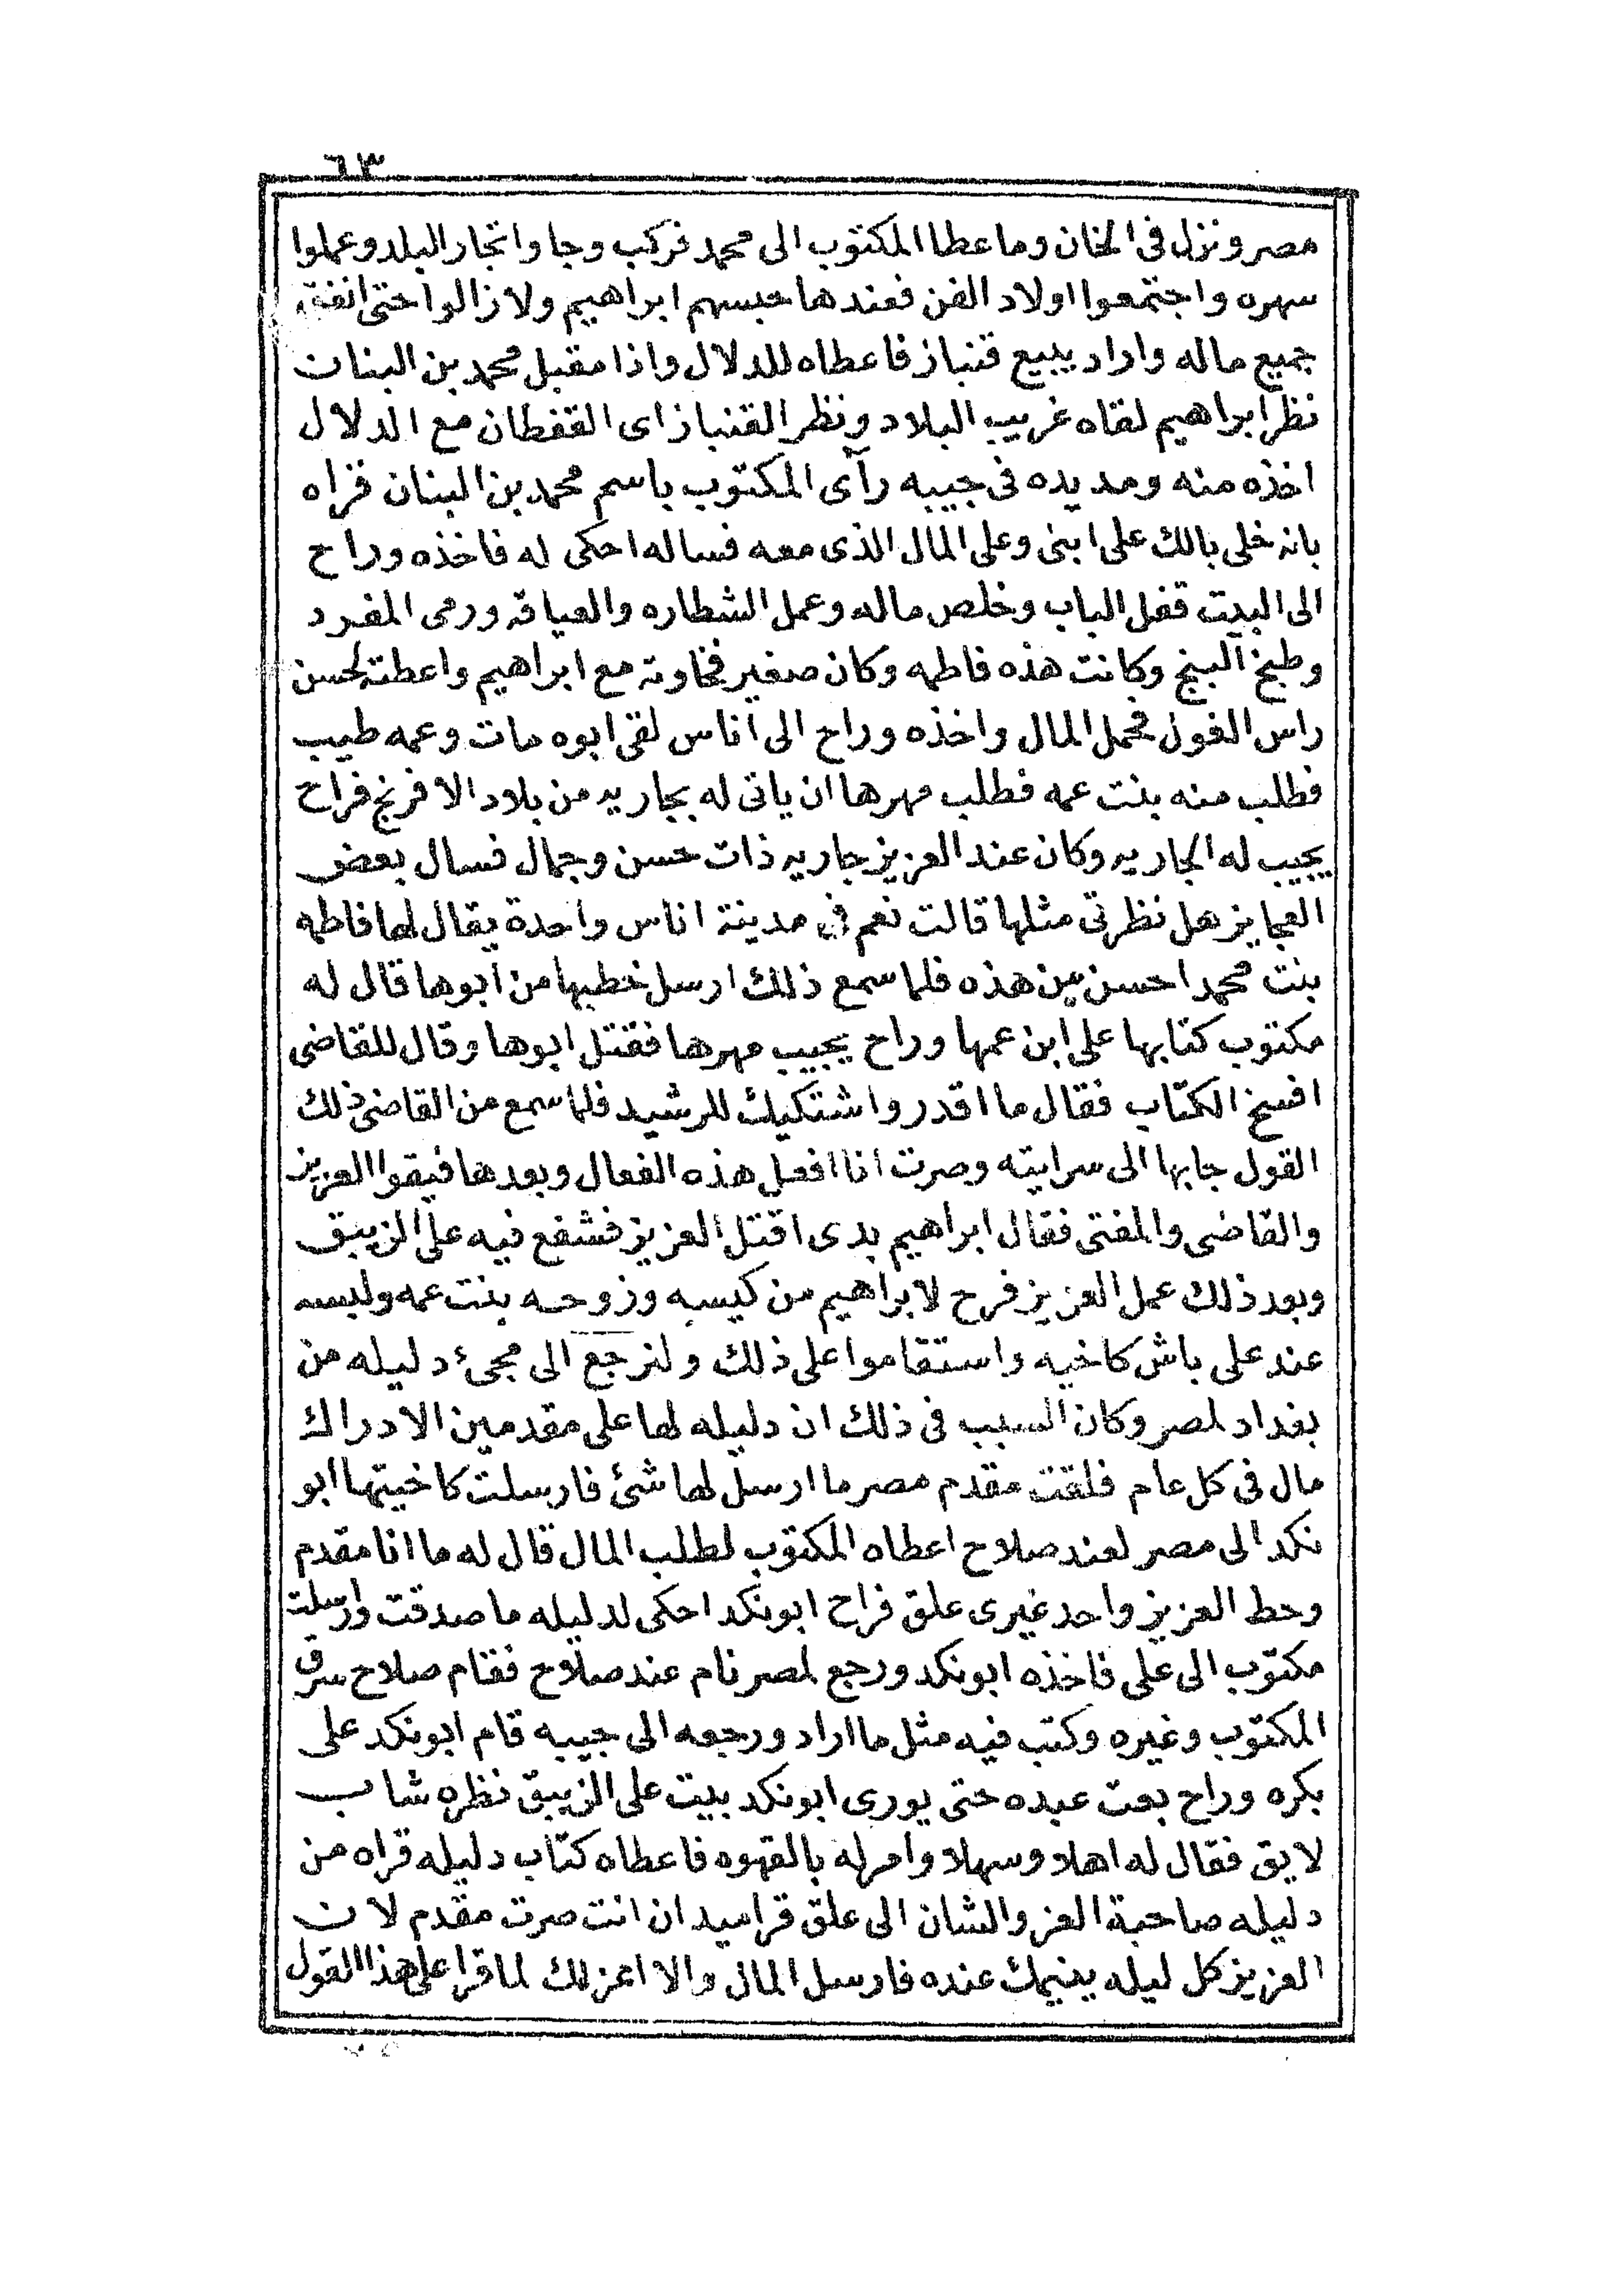 ٦٣
مصر ونزل فى الخان وما عطا المكتوب الى محمد فركب وجا واتجار البلد وعملوا
سهره واجتمعوا اولاد الفن فعندها حبسهم ابراهيم ولا زالوا حتى انفق
جميع ماله واراد يبيع قنباز فاعطاه للدلال واذا مقبل محمد بن البنات
نظر ابراهيم لقاه غريب البلاد ونظر القنباز اى القفطان مع الدلال
اخذه منه ومد يده فى جيبه رآى المكتوب باسم محمد بن البنان قراه
بانه خلى بالك على ابنى وعلى المال الذى معه فساله احكى له فاخذه وراح
الى البيت قفل الباب وخلص ماله وعمل الشطاره والعياقه ورمى المفرد
وطبخ البنج وكانت هذه فاطمه وكان صغير فخاوته مع ابراهيم واعطته لحسن
راس الغول فحمل المال واخذه وراح الى اناس لقى ابوه مات وعمه طيب
فطلب منه بنت عمه فطلب مهرها ان ياتى له بجاريه من بلاد الافرنج فراح
يجيب له الجاريه وكان عند العزيز جاريه ذات حسن وجمال فسال بعض
العجايز هل نظرتى مثلها قالت نعم فى مدينة اناس واحدة يقال لها فاطمه
بنت محمد احسن من هذه فلما سمع ذلك ارسل خطبها من ابوها قال له
مكتوب كتابها على ابن عمها وراح يجيب مهرها فقتل ابوها وقال للقاضى
افسخ الكتاب فقال ما اقدر واشتكيك للرشيد فلما سمع من القاضى ذلك
القول جابها الى سرايته وصرت انا افعل هذه الفعال وبعدها فيقوا العزيز
والقاضى والمفتى فقال ابراهيم بدى اقتل العزيز فشفع فيه على الزيبق
وبعد ذلك عمل العزيز فرح لابراهيم من كيسه وزوجه بنت عمه ولبسه
عند على باش كاخيه واستقاموا على ذلك ولنرجع الى مجئ دليله من
بغداد لمصر وكان السبب فى ذلك ان دليله لها على مقدمين الادراك
مال فى كل عام فلقت مقدم مصر ما ارسل لها شئ فارسلت كاخيتها ابو
نكد الى مصر لعند صلاح اعطاه المكتوب لطلب المال قال له ما انا مقدم
وحط العزيز واحد غيرى علق فراح ابو نكد احكى لدليله ما صدقت وارسلت
مكتوب الى على فاخذه ابو نكد ورجع لمصر نام عند صلاح فقام صلاح سرق
المكتوب وغيره وكتب فيه مثل ما اراد ورجعه الى جيبه قام ابو نكد على
بكره وراح بعت عبده حتى يورى ابو نكد بيت على الزيبق نظره شاب
لايق فقال له اهلا وسهلا وامر له بالقهوه فاعطاه كتاب دليله قراه من
دليله صاحبة العز والشان الى علق قراميدان انت صرت مقدم لان
العزيز كل ليله ينيمك عنده فارسل المال والا اعزلك لما قرا على هذا القول